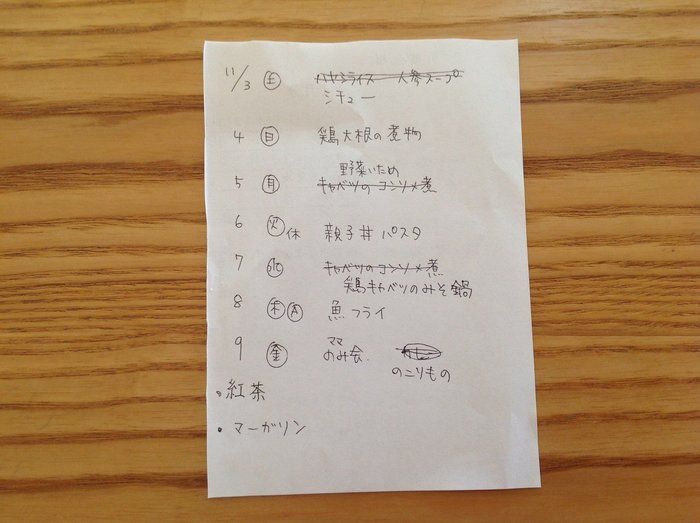 11/3 土 ハヤシライス 人参スープ
シチュー
4 日 鶏大根の煮物
野菜いため
5 月 キャベツのコンソメ煮
6 火 休 親子丼 パスタ
7 水 キャベツのコンソメ煮
鶏キャベツのみそ鍋
8 木 A 魚フライ
9 金 ママ
のみ会.
のこりもの
・紅茶
・マーガリン